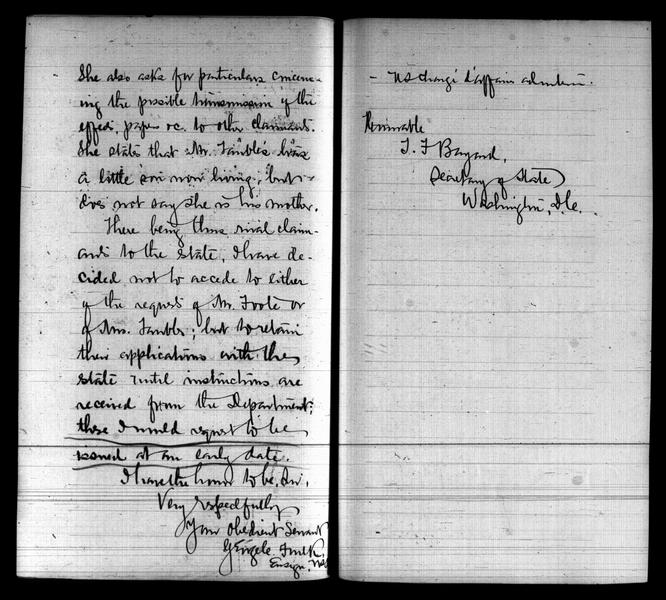 She also asks for particulars concern-
ing the possible transmission of the
effects, papers &c. to other claimants.
She states that Mr. Tamble "has
a little son now living", but
does not say she is his mother.
There being thus rival claim-
ants to the estate, I have de-
cided not to accede to either
of the requests of Mr. Foote or
of Mrs. Tamble; but to retain
their applications with the
estate until instructions are
received from the Department;
these I would request to be
issued at an early date.
I have the honor to be, Sir,
Very respectfully
Your Obedient Servant
George C. Foulk,
Ensign,
– US Chargé d'affaires ad interim.
Honorable
T. F. Bayard,
Secretary of State,
Washington, D.C.